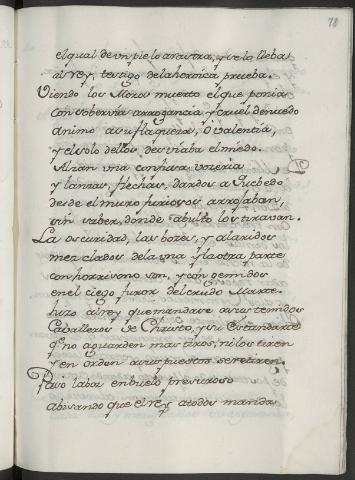 78
el qual de un pie lo arrastra, y se lo lleba
al rey, testigo de la heroica prueba.
Viendo los Moros muerto el que ponia
con sobervia arrogancia, y cruel denuedo
animo a su flaqueza, o valentia,
y el solo dellos desviaba el miedo.
Alzan una confusa vozeria
y lanzas, flechas, dardos a
desde el muro furiosos arrojaban,
sin saber, donde a bulto los tiravan.
La oscuridad, las bozes, y alaridos
mezclados de la una y la otra parte
con horrisono son, y con gemidos
en el ciego furor del crudo Marte
hizo al rey que mandase a sus temidos
Caballeros de Christo, y su Estandarte
q.e no aguarden mas tiros, ni los tiren
y en orden a sus puestos se retiren.
Paso la boz en buelo presuroso
abisando que el rey a todos manda